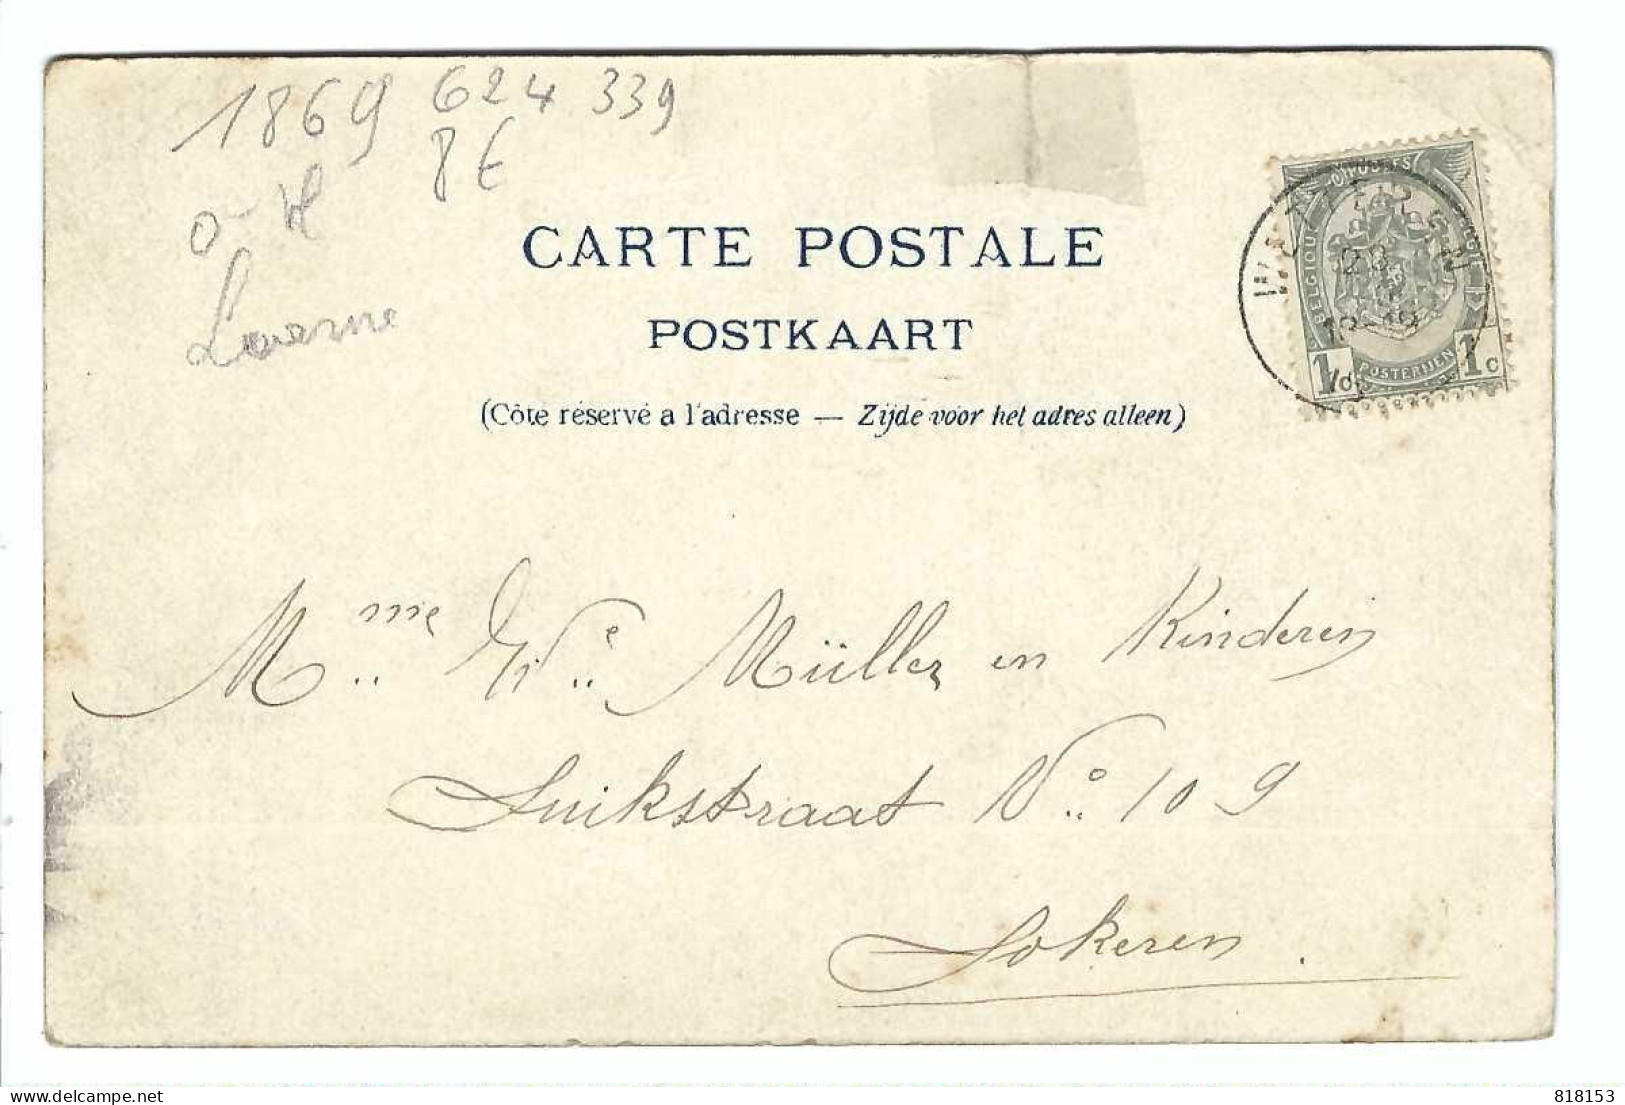 1869 624 339
8€
O-Vl
Laerne
CARTE POSTALE
POSTKAART
(Côte réservé a l'adresse — Zijde voor het adres alleen)
POSTES
BELGIQUE
BELGIË
POSTERIJEN
1c 1c
WETTEREN
Mme We Müller en Kinderen
Luikstraat No 109
Lokeren.
delcampe.net
818153